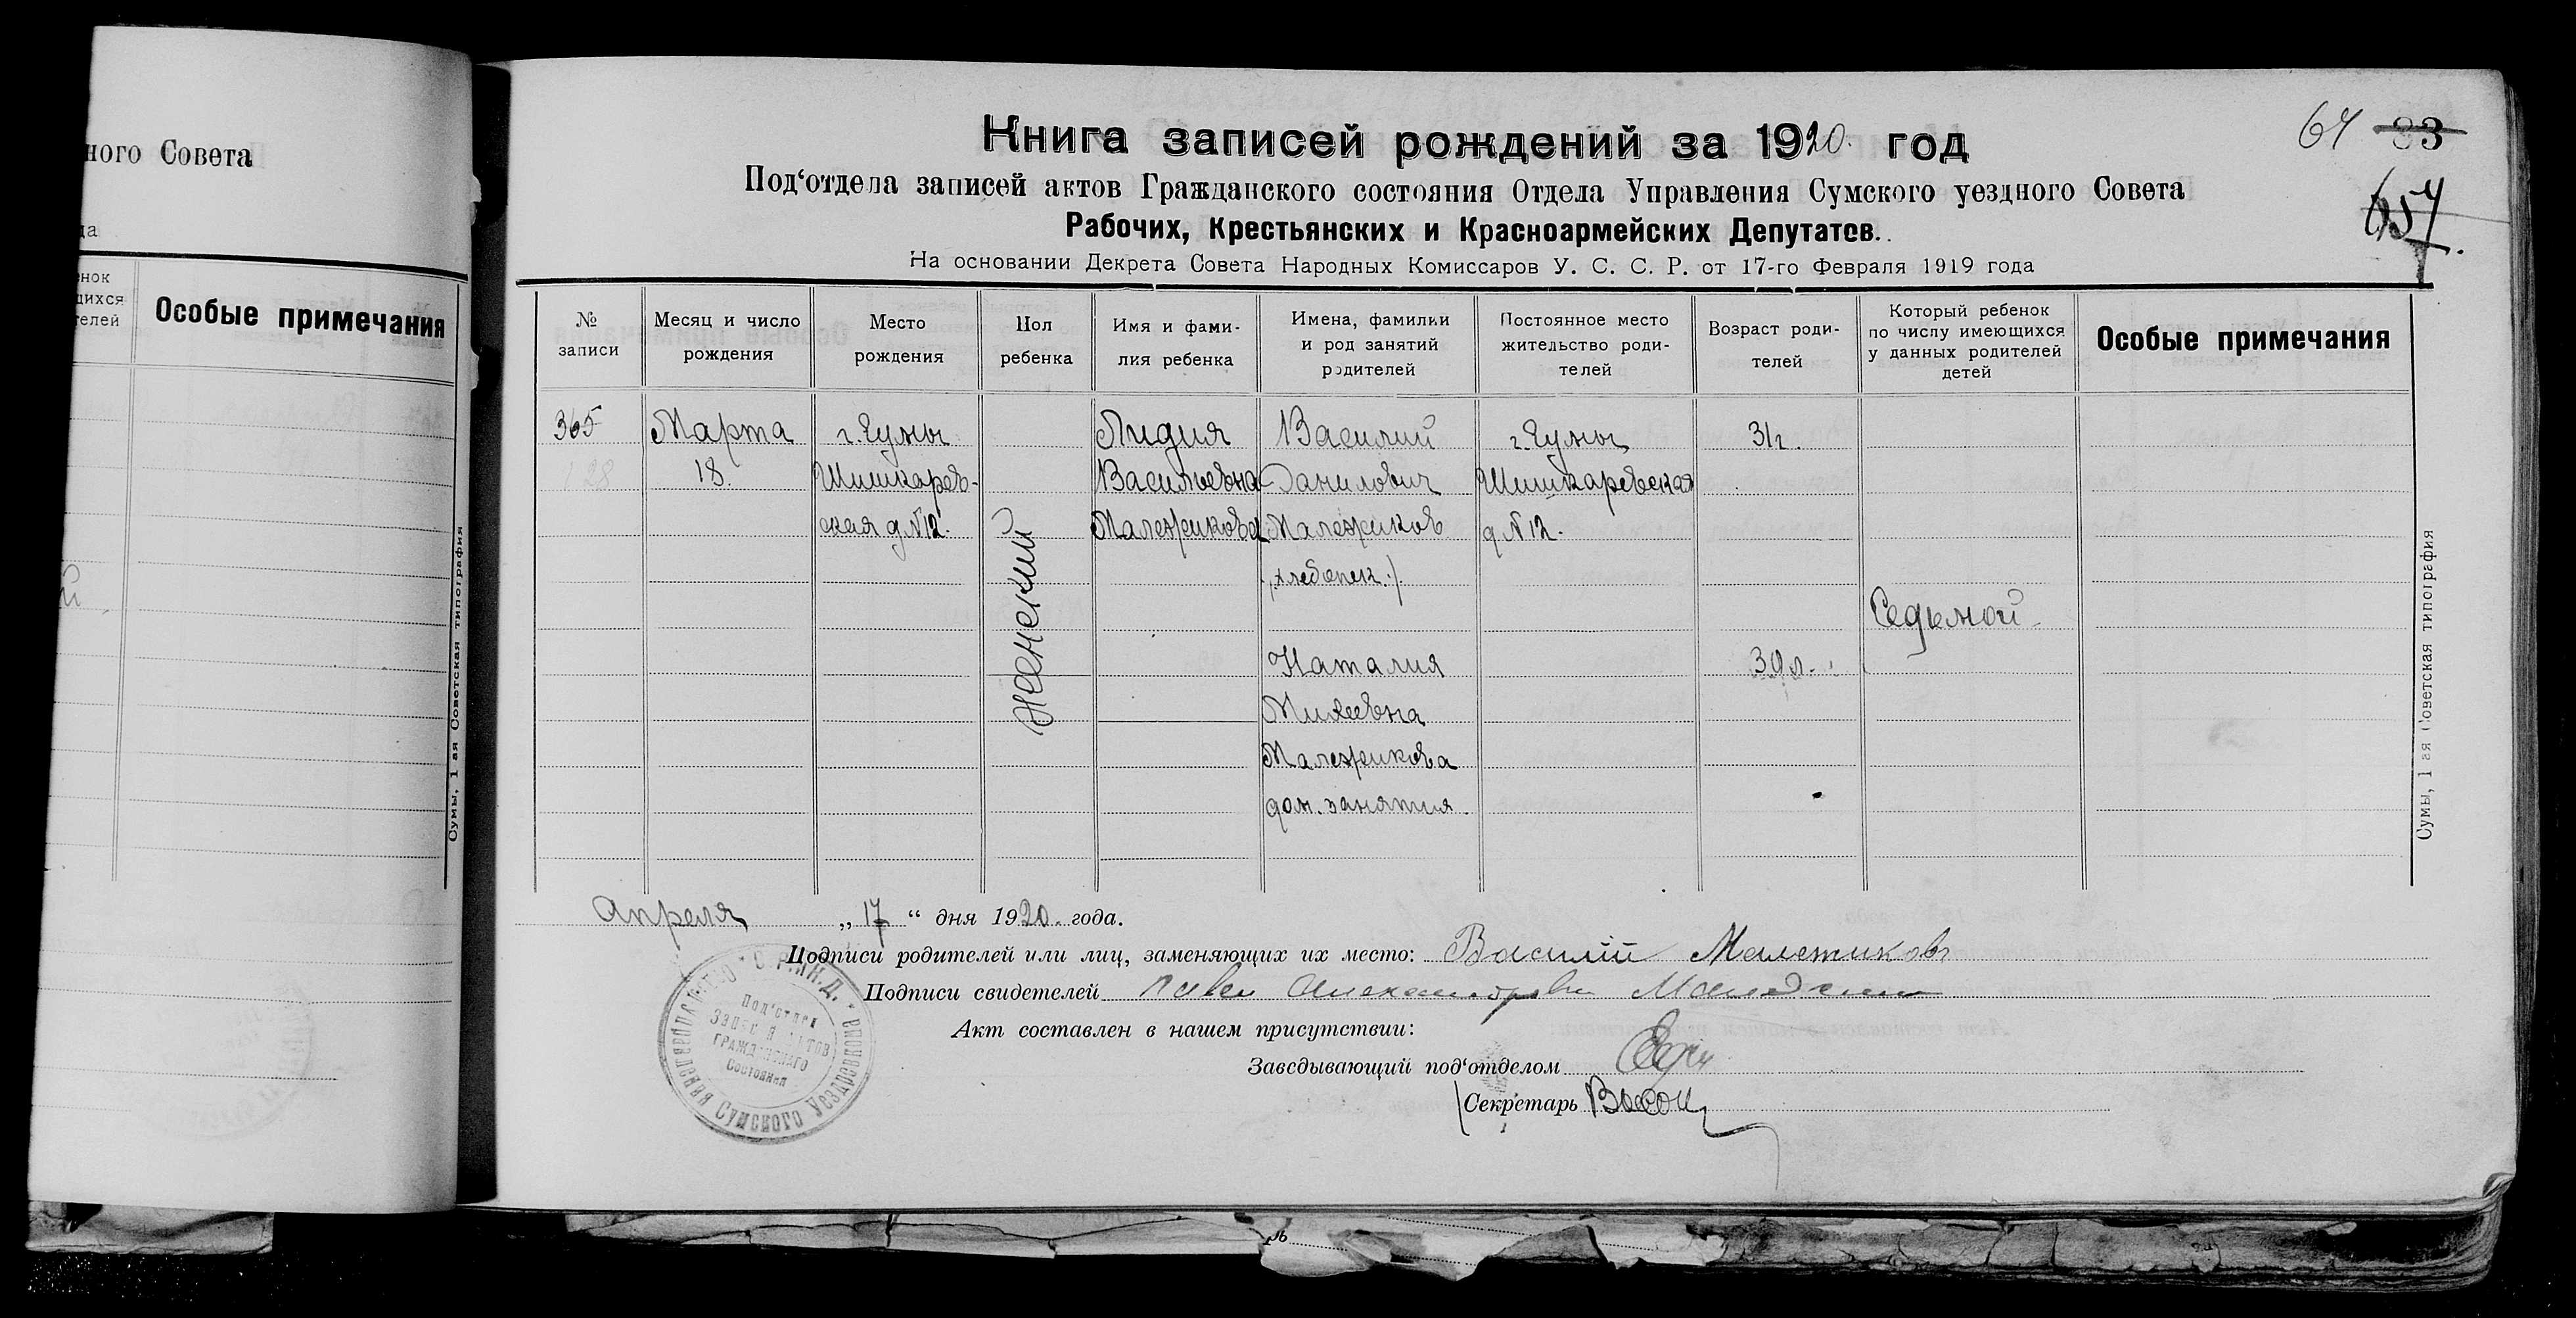 ного Совета
да
Особые примечания
Сумы, 1 ая Советская типография
64 83
657
Книга записей рождений за 1920 год
Под‘отдела записей актов Гражданского состояния Отдела Управления Сумского уездного Совета
Рабочих, Крестьянских и Красноармейских Депутатов.
На основании Декрета Совета Народных Комиссаров У. С. С. Р. от 17-го Февраля 1919 года
№ записи
Месяц и число рождения
Место рождения
Пол ребенка
Имя и фами-
лия ребенка
Имена, фамилии
и род занятий
родителей
Постоянное место
жительство роди-
телей
Возраст роди-
телей
Который ребенок
по числу имеющихся
у данных родителей
детей
Особые примечания
365
128
Марта
18.
г. Сумы
Шишкарев-
ская д № 12.
Женский
Лидия
Васильевна
Малежикова
Василий
Данилович
Малежиков
(хлебопек.)
Наталия
Малежикова
дом. занятия.
г. Сумы
Шишкаревская
д № 12.
31 г.
39 л.
Седьмой
Сумы, 1 ая Советская типография
Апреля „17“ дня 1920 года.
Подписи родителей или лиц, заменяющих их место: Василий Малежиков
Подписи свидетелей Павел Александрович
Акт составлен в нашем присутствии:
Заведывающий под‘отделом
Секретарь
Под‘отдел
Записи актов
Гражданского
Состояния
Сумского Уездревкома